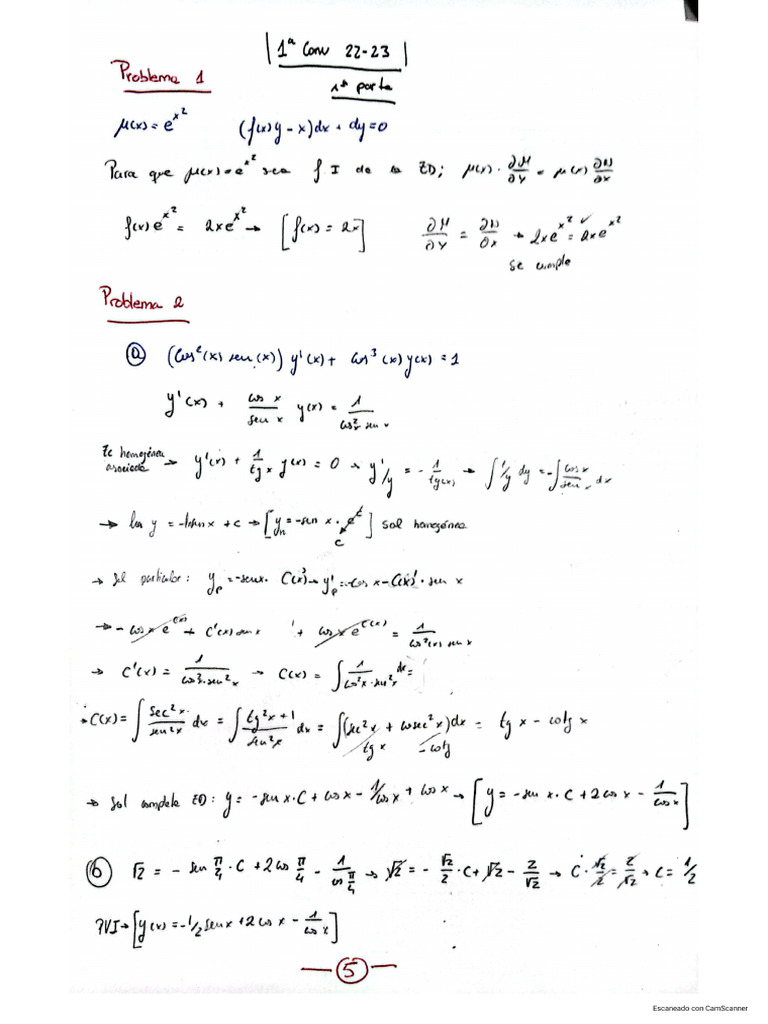 1ª Conv 22-23
1ª parte
Problema 1
μ(x) = e^{x^2}   (f(x)y - x)dx + dy = 0
Para que μ(x) = e^{x^2} sea f I de la ED; μ(x) · ∂M/∂y = μ(x) ∂N/∂x
f(x)e^{x^2} = 2xe^{x^2} → [f(x) = 2x]   ∂M/∂y = ∂N/∂x → 2xe^{x^2} = 2xe^{x^2} ✓
Se cumple
Problema 2
ⓐ (cos²(x) sen(x)) y'(x) + cos³(x) y(x) = 1
y'(x) + cos x/sen x y(x) = 1/cos²x sen x
Ec homogénea asociada → y'(x) + 1/tg x y(x) = 0 → y'/y = - 1/tg(x) → ∫ 1/y dy = -∫ cos x/sen x dx
→ ln y = -ln sen x + c → [y_h = -sen x · e^c] sol homogénea
c
→ Sol particular: y_p = -sen x · C(x) → y'_p = -cos x - C(x)' · sen x
→ - cos x e^{C(x)} + C'(x) sen x + cos x e^{C(x)} = 1/cos²(x) sen x
→ C'(x) = 1/cos²·sen²x → C(x) = ∫ 1/cos²x·sen²x dx =
→ C(x) = ∫ sec²x/sen²x dx = ∫ tg²x+1/sen²x dx = ∫(sec²x + cosec²x)dx = tg x - cotg x
tg x   -cotg
→ Sol completa ED: y = -sen x·C + cos x - 1/cos x + cos x → [y = -sen x·C + 2cos x - 1/cos x]
ⓑ √2 = - sen π/4 · C + 2cos π/4 - 1/cos π/4 → √2 = - √2/2 · C + √2 - 2/√2 → C · √2/2 = 2/√2 → C = 1/2
PVI → [y(x) = -1/2 sen x + 2 cos x - 1/cos x]
— ⑤ —
Escaneado con CamScanner